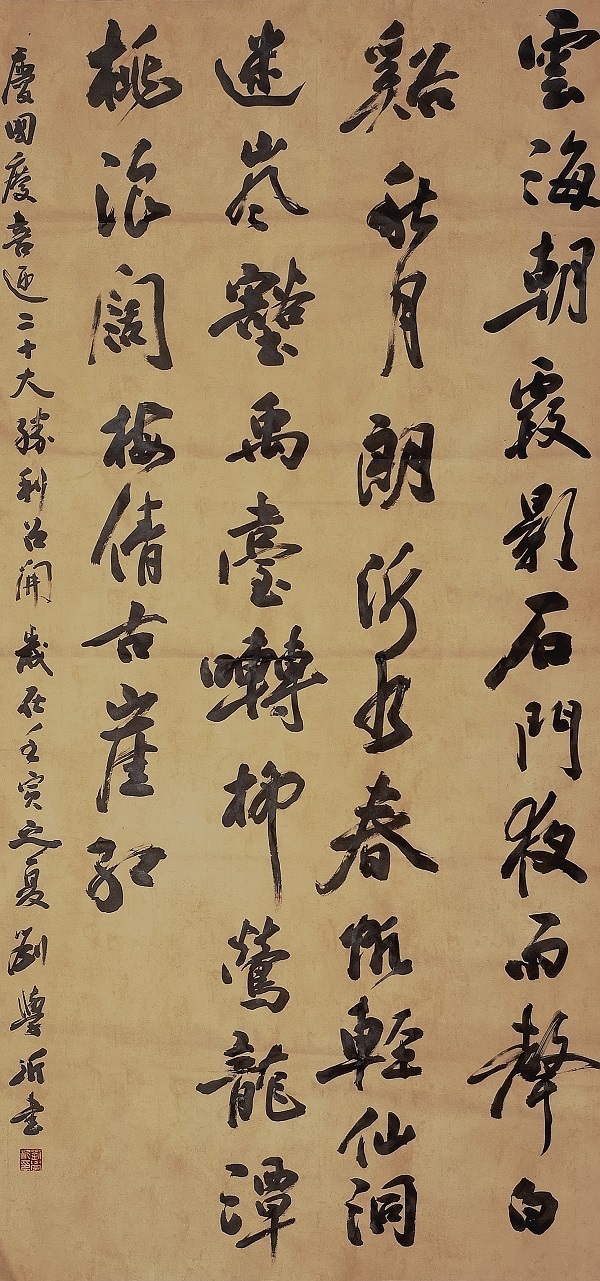 雲海朝霞影石門夜雨聲白
谿秋月朗沂水春帆輕仙洞
迷嵐壑禹臺囀柳鶯龍潭
桃浪闊梅倩古崖紅
慶國慶喜迎二十大勝利召開歲在壬寅之夏劉學沂書